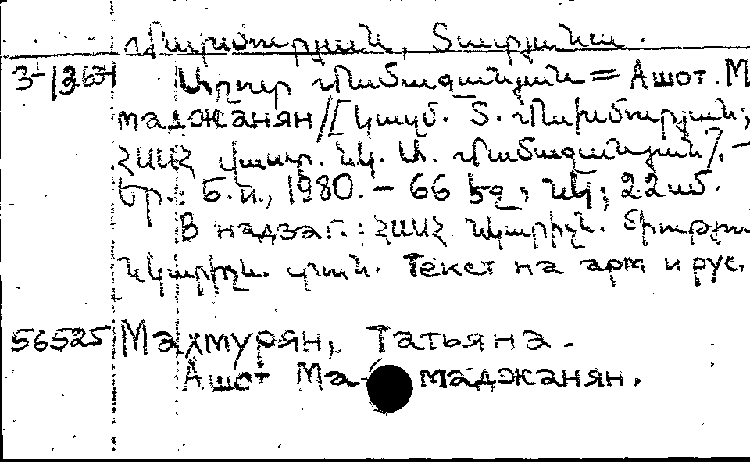 Մախմուրյան, Տատյանա.
3-1263 Աշոտ Մամաջանյան = Ашот М
маджанян/[Կազմ. Տ. Մախմուրյան;
ՀՍՍՀ վաստ. նկ. Ա. Մամաջանյան]. -
Եր.: Б. и., 1980. - 66 էջ, նկ; 22 սմ.
В надзаг.: ՀՍՍՀ նկարիչն.
նկարիչն. Текст на арм и рус.
56525 Махмурян, Татьяна.
Ашот Ма маджанян.